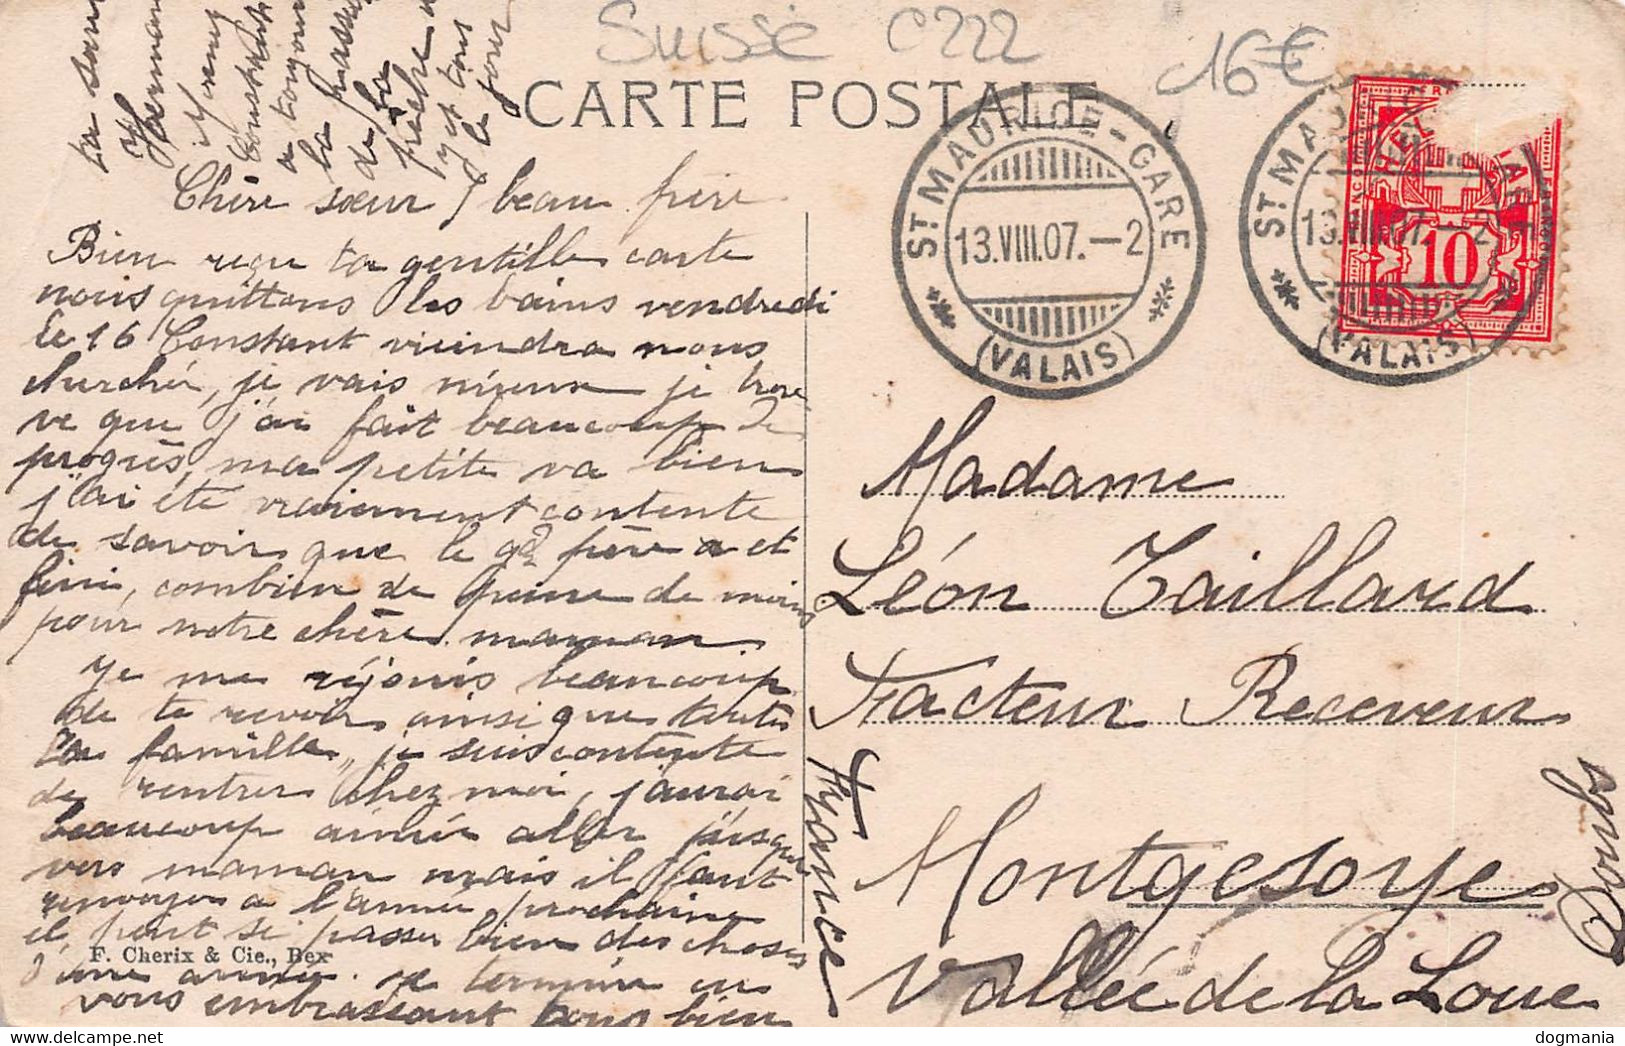 Suisse C222 16€
CARTE POSTALE
ST MAURICE-GARE
13.VIII.07.-2
(VALAIS)
ST MAURICE-GARE
13.VIII.07.-2
(VALAIS)
10
Chère sœur & beau frère
Bien reçu ta gentille carte
nous quittons les bains vendredi
le 16 Constant viendra nous
cherché, je vais mieux je trou
ve que j'ai fait beaucoup de
progrès, ma petite va bien
j'ai été vraiment contente
de savoir que le gd père a et
fini, combien de peine de moins
pour notre chère maman.
Je me réjouis beaucoup
de te revoir ainsi que toute
la famille, je suis contente
de rentrer chez moi, j'aurai
beaucoup aimé aller jusque
vers maman mais il faut
renvoyer a l'année prochaine
il peut se passer bien des choses
d'une année. je termine en
vous embrassant tous bien
ta sœur
Hermance
Constant
a toujours
la
de la
prêche
tous
le jour
F. Cherix & Cie., Bex
Madame
Léon Taillard
Facteur Receveur
Montgesoye
Vallée de la Loue
Doubs
France
dogmania